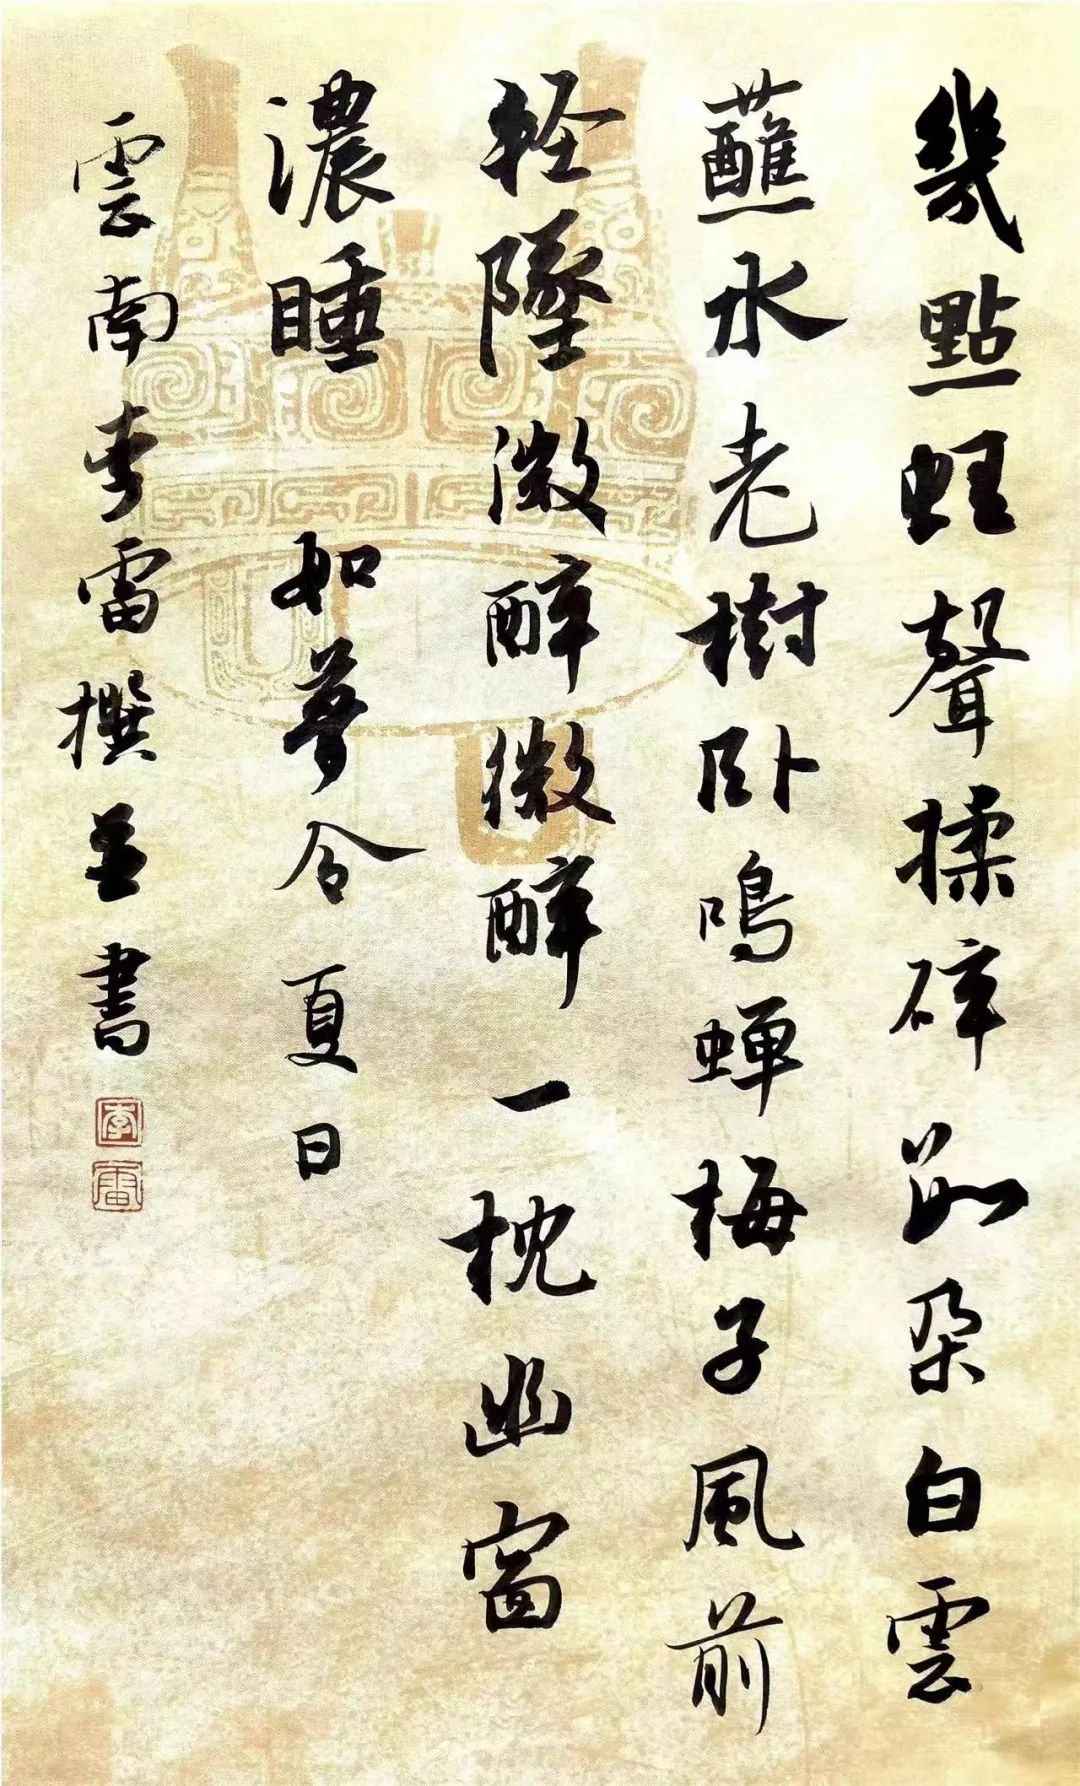 幾點蛙聲揉碎朵白雲
蘸水老樹卧鳴蟬梅子風前
輕墜微醉微醉一枕幽窗
濃睡
如夢令夏日
雲南李雷撰並書
李
雷